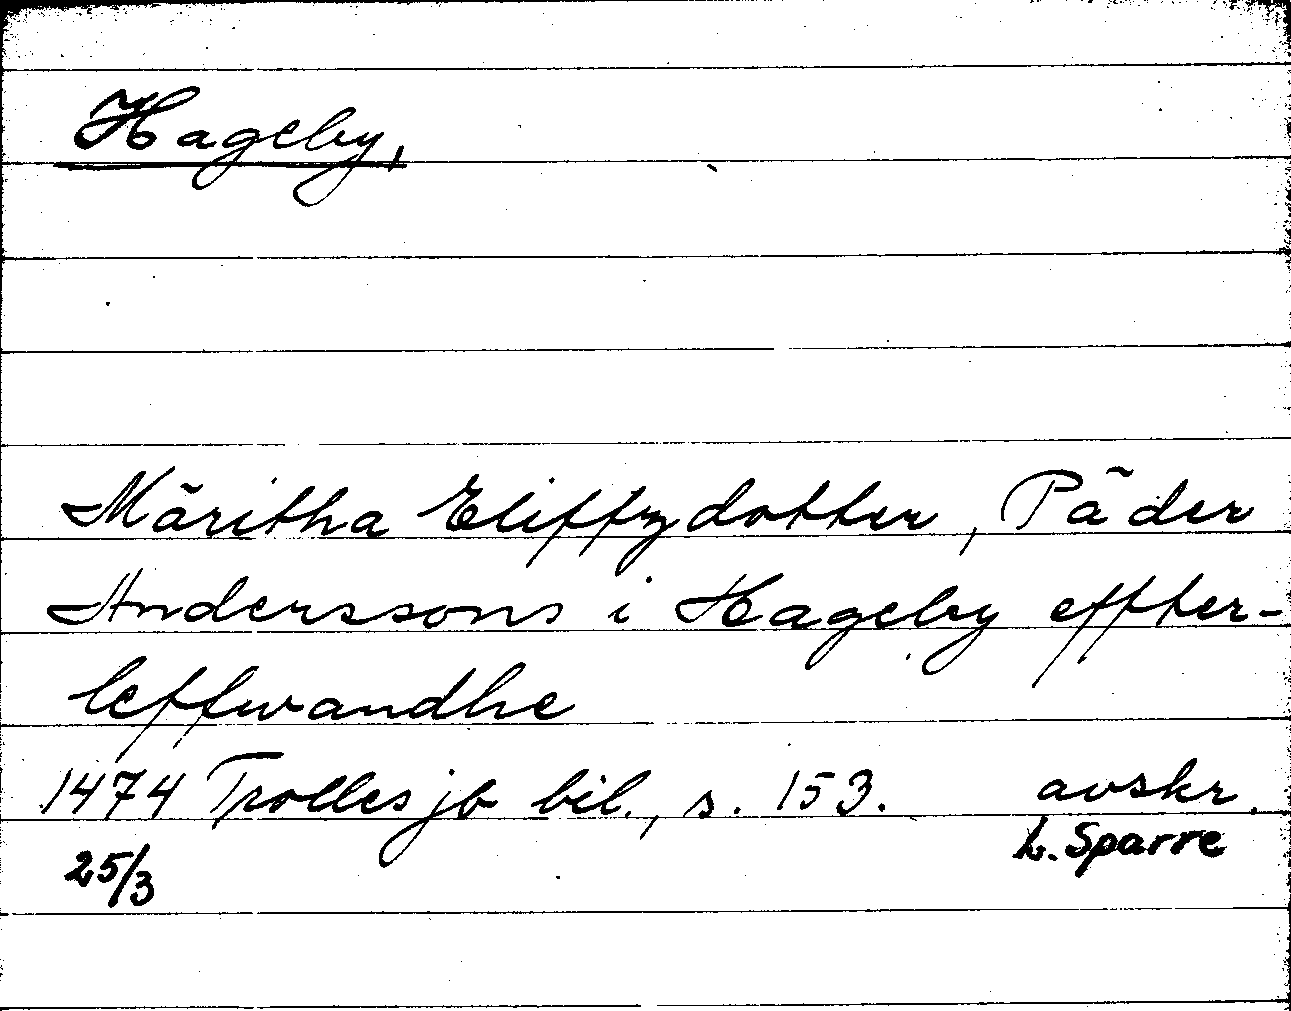 Hageby,
Märitha Eliffzdotter, Päder
Anderssons i Hageby effter-
leffwandhe
1474 Trolles jb bil., s. 153. avskr.
25/3 L. Sparre